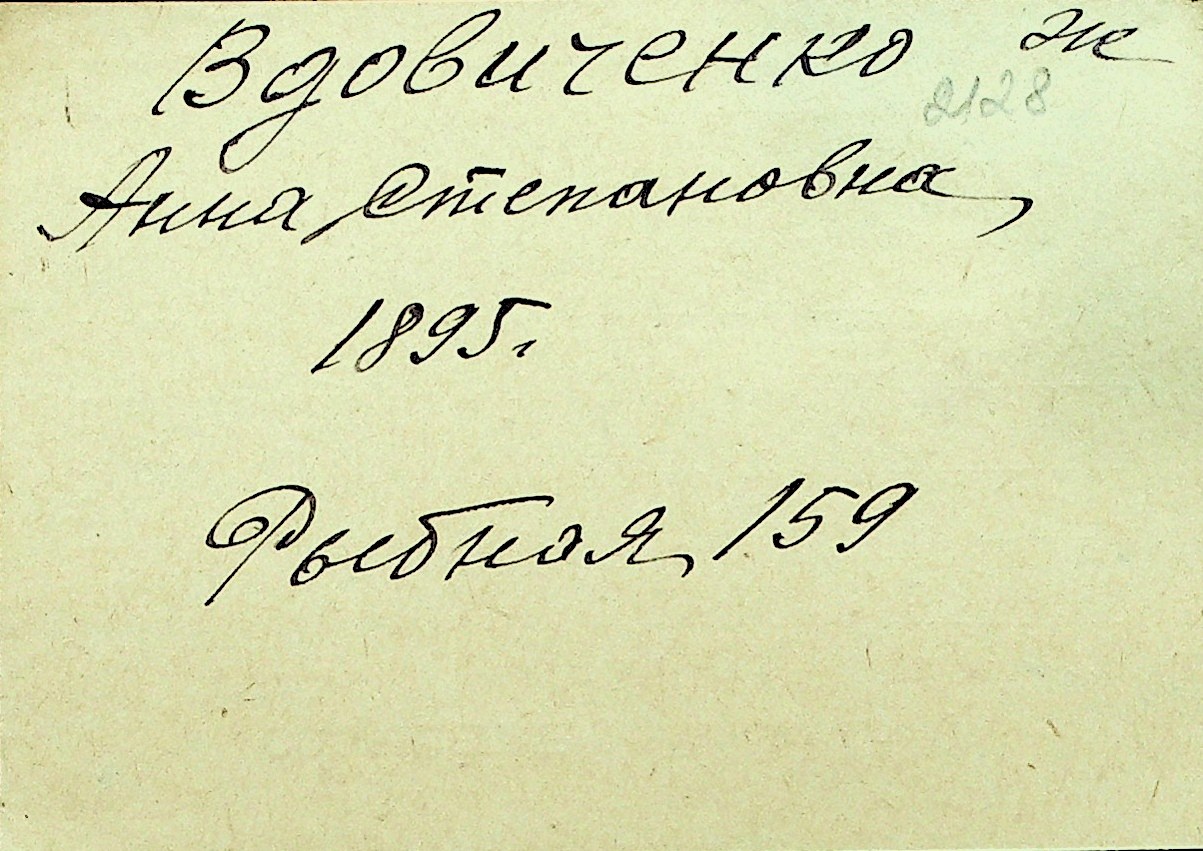 Вдовиченко ж
2128
Анна Степановна,
1895г.
Рыбная, 159